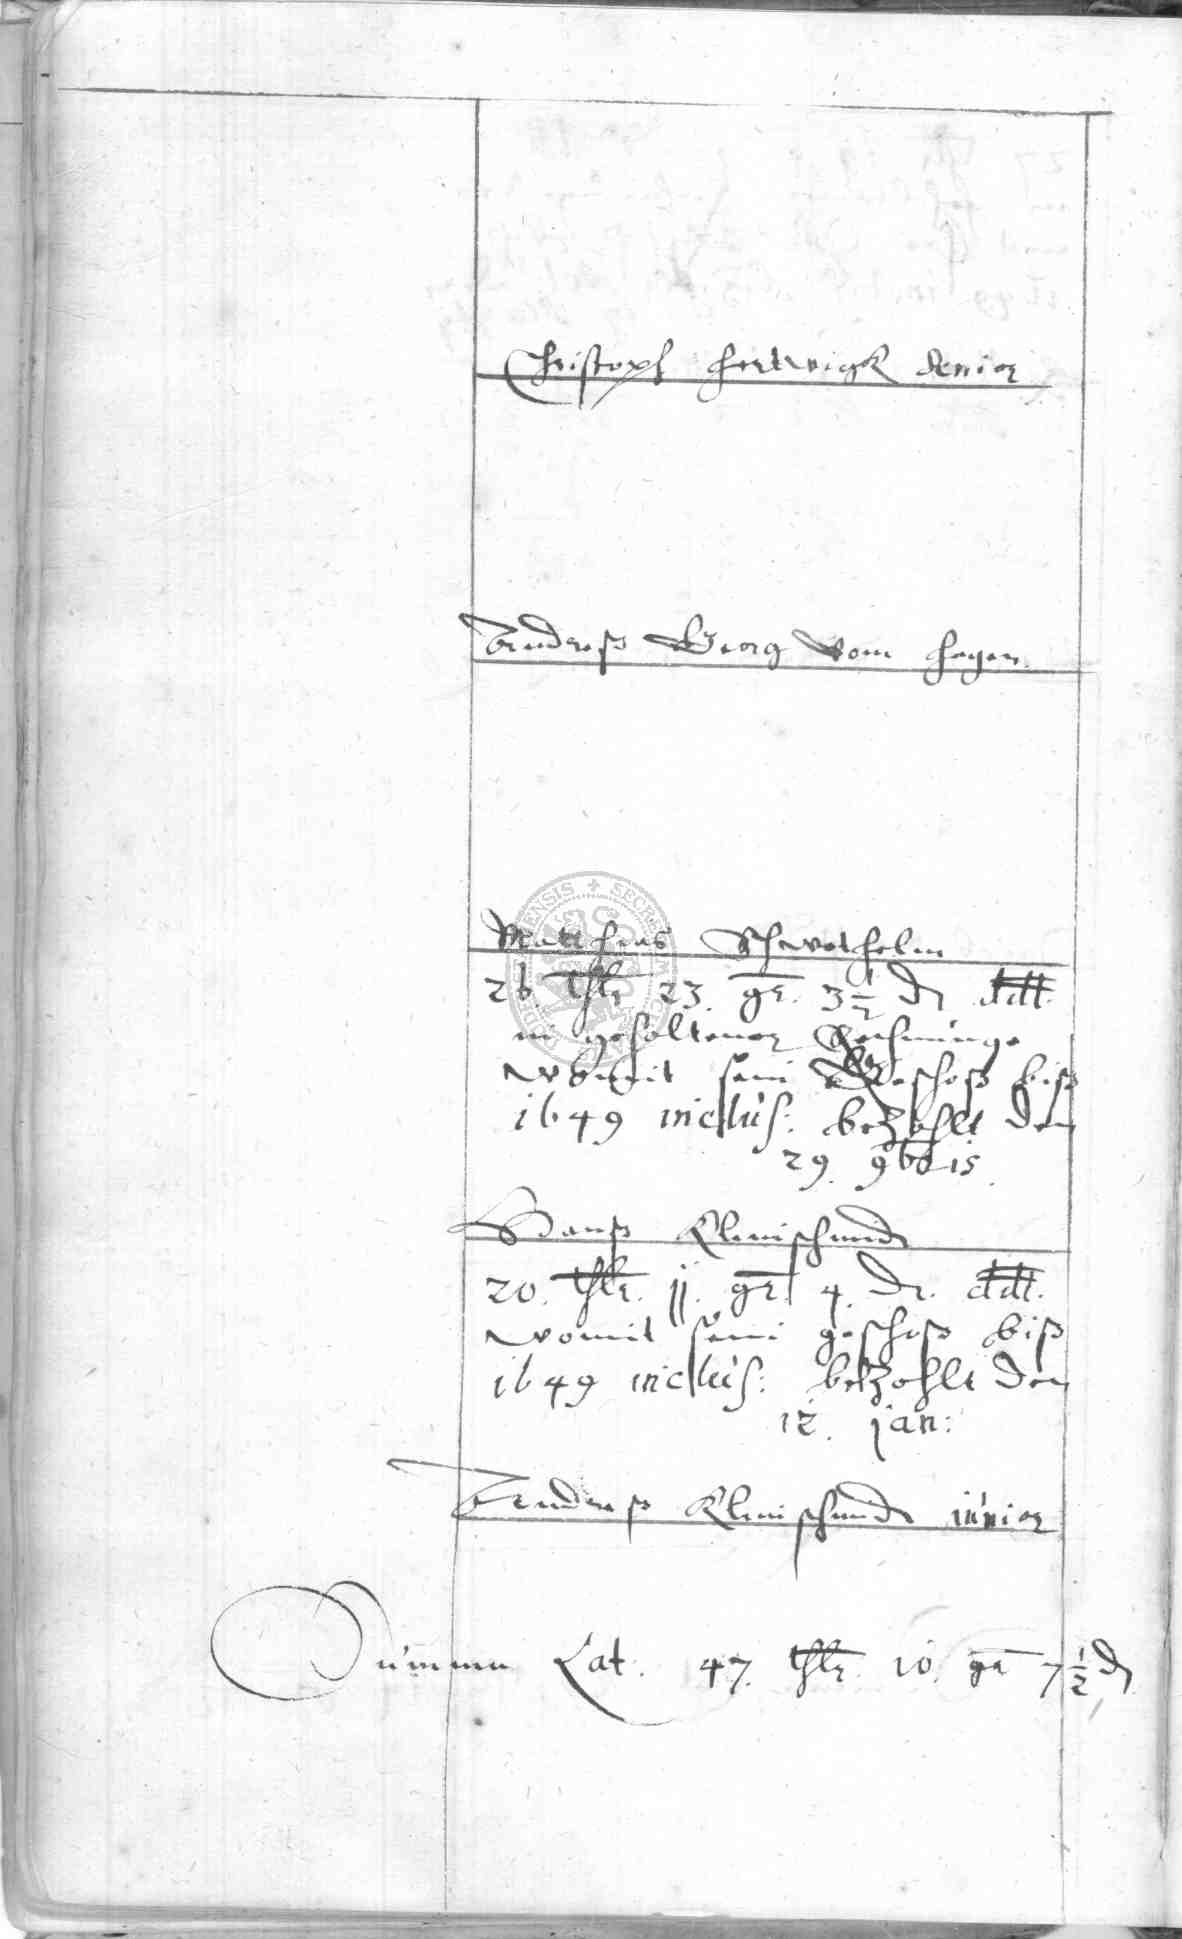 Christoph Hertwigk Senior
Andreß Georg Vom Hagen
Matthias
26. thlr 23. gr. 3 1/2 d ddt.
in gehaltener Rechnunge
womit sein Geschoß biß
1649 inclus: bezahlt den
29. 9bris
Hanß Kleinschmid
20. thlr. 11. gr. 4. d. ddt.
womit sein geschoß biß
1649 inclus: bezahlt den
12. jan:
Andreß Kleinschmid junior
Summa Lat. 47. thlr. 10. gr 7 1/2 d